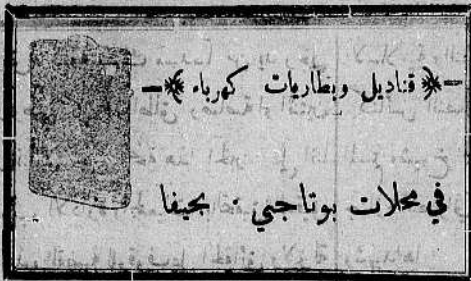 قناديل وبطاريات كهرباء
في محلات بوتاجي · بحيفا